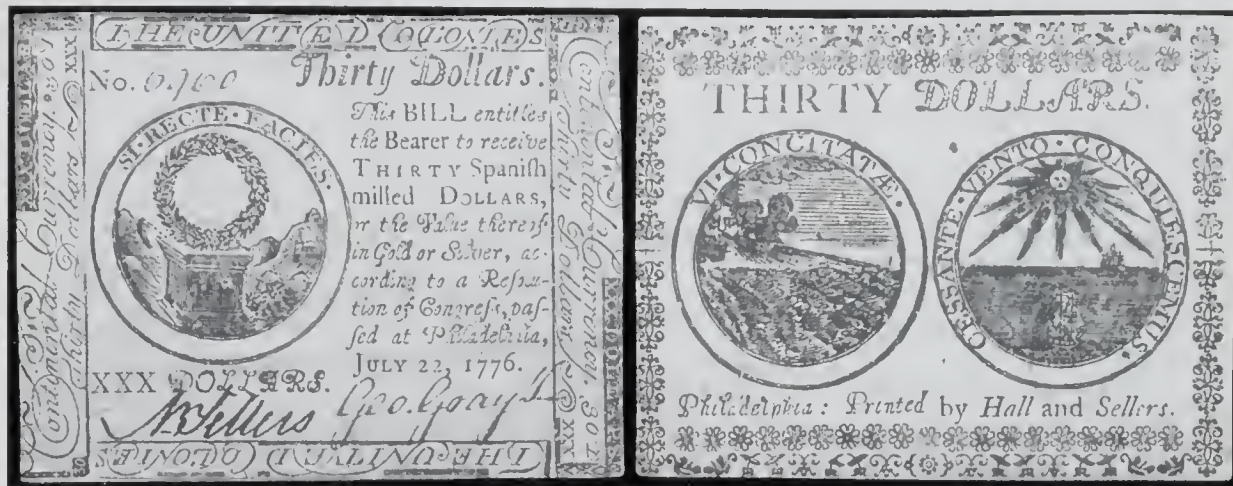 THE UNITED COLONIES
No.
Thirty Dollars.
SI RECTE FACIES.
This BILL entitles
the Bearer to receive
THIRTY Spanish
milled DOLLARS,
or the Value thereof
in Gold or Silver, ac-
cording to a Resolu-
tion of Congress, pas-
sed at Philadelphia,
JULY 22, 1776.
XXX DOLLARS.
N Sellers Geo. Gray
THE UNITED COLONIES
Continental Currency. 30 D XXX
Thirty Dollars
Continental Currency. 30 D
Thirty Dollars. XXX
THIRTY DOLLARS.
VI · CONCITATÆ ·
CESSANTE · VENTO · CONQUIESCEMUS.
Philadelphia: Printed by Hall and Sellers.